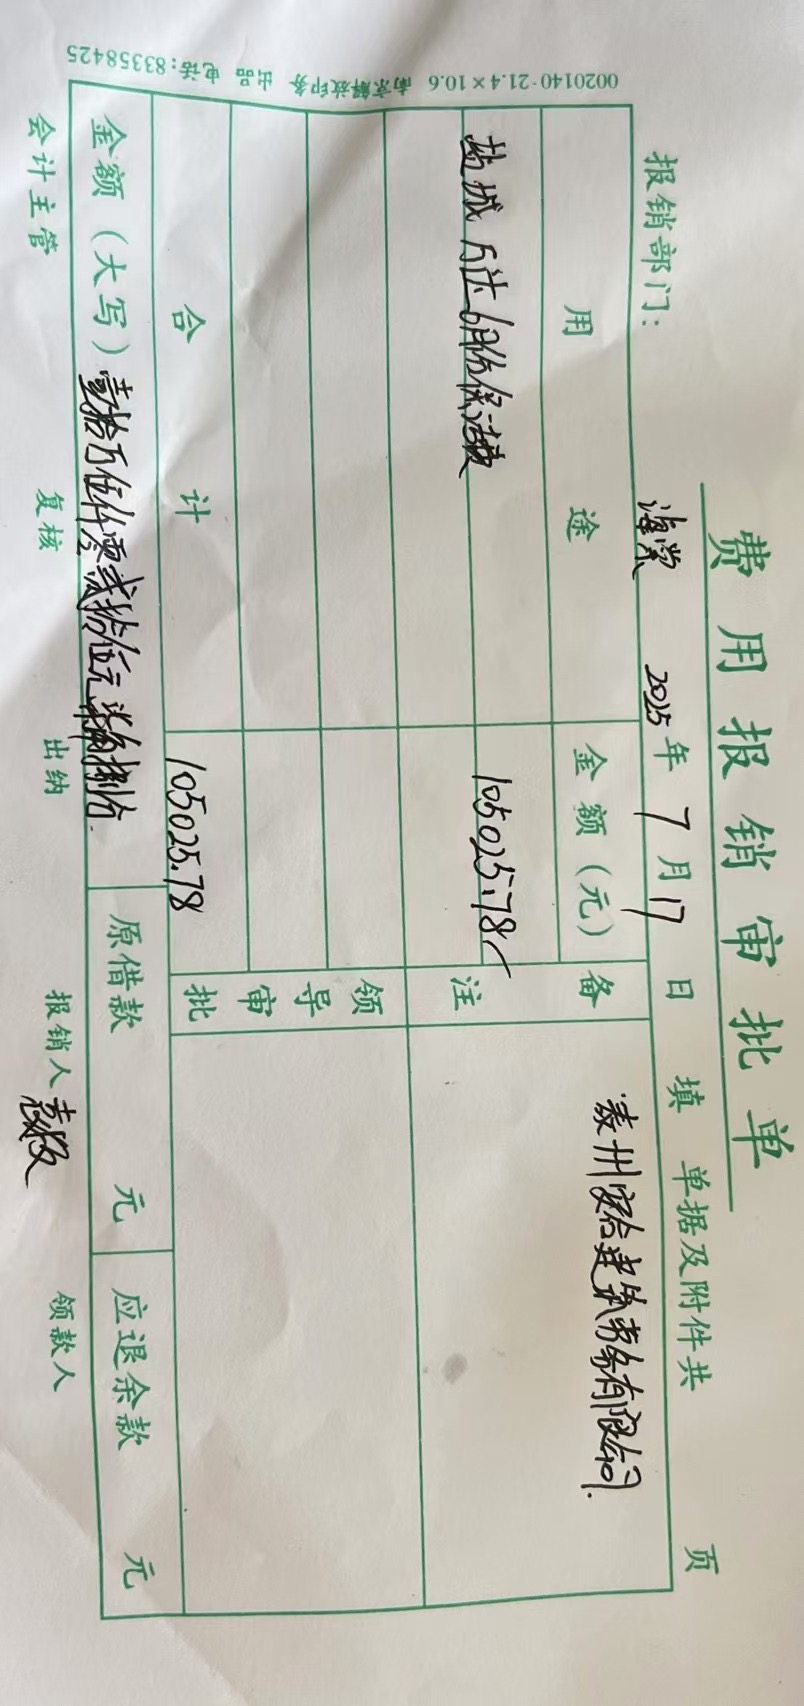 费用报销审批单
报销部门： 海棠 2025 年 7 月 17 日 填 单据及附件共 页
用途 金额（元） 备注
盐城万达6月份保洁费 105025.78 泰州安合建筑劳务有限公司.
领导审批
合计 105025.78
金额（大写）壹拾万伍仟零贰拾伍元柒角捌分. 原借款 元 应退余款 元
会计主管 复核 出纳 报销人 领款人
0020140-21.4×10.6 南京解放印务 出品 电话:83358425